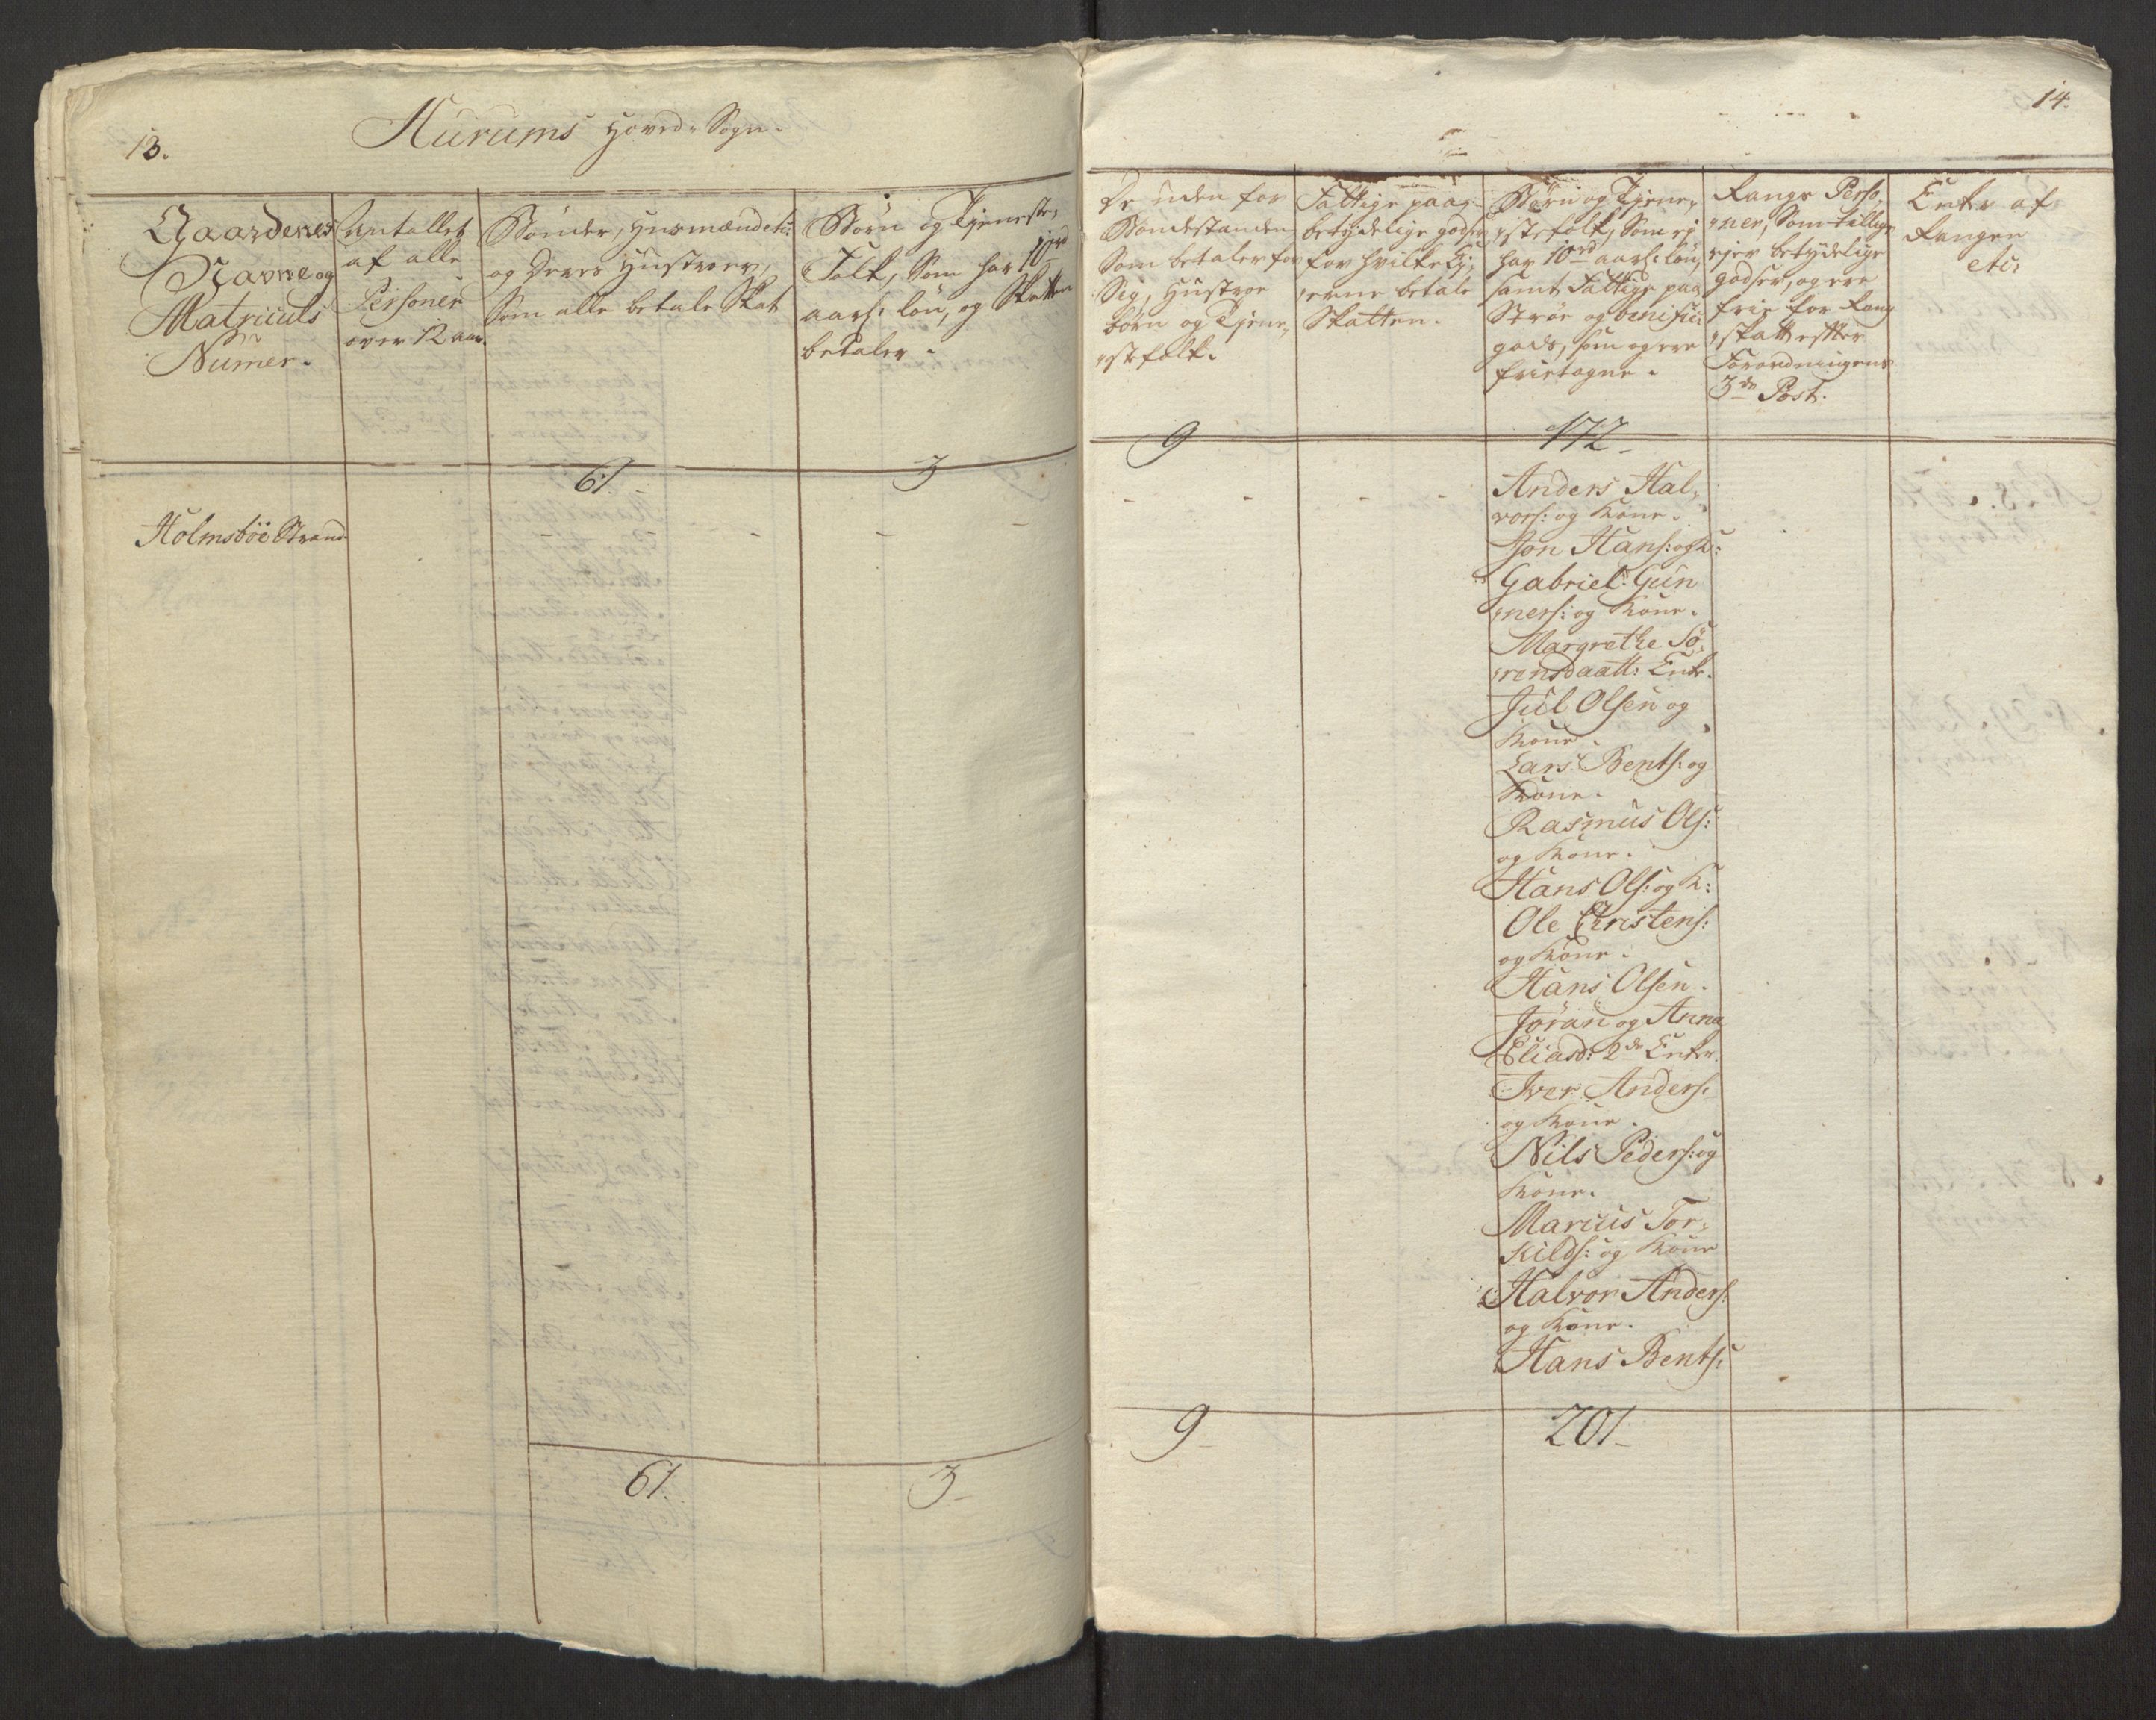 13.
Hurums Hoved-Sogn.
Gaardenes
Navne og
Matriculs
Numer.
Antallet
af alle
Personer
over 12 aar.
Bönder, Husmænd etc:
og Deres Hustroer,
Som alle betale Skat
Börn og Tjeneste-
Folk, Som har 10rd
aarl: lön, og Skatten
betaler.
61.
3
Holmsböe Strand
61.
3
14.
De uden for
Bondestanden
Som betaler for
Sig, Hustroe
börn og Tjene-
stefolk.
Fattige paa
betydelige godser
for hvilke Ej-
erne betale
Skatten.
Börn og Tjene-
stefolk, Som ej
har 10rd aarl: lön,
samt Fattige paa
Ströe og benifici
gods, som og ere
frietagne.
Rangs Perso-
ner, Som tillige
ejer betydelige
godser, og ere
frie for Rang
skatt efter
Forordningens
3de Post.
Enker af
Rangen
etc:
9
172
Anders Hal-
vors: og Kone.
Jon Hans: og K:
Gabriel Gun
ners: og Kone.
Margrethe Sö-
rensdaatt: Enke.
Jul Olsen og
Kone.
Lars Bents: og
Kone.
Rasmus Ols:
og Kone.
Hans Ols: og K:
Ole Christens:
og Kone.
Hans Olsen.
Jöran og Anna
Eliasd: 2de Enker.
Iver Anders:
og Kone.
Nils Peders: og
Kone.
Marcus Tor-
kilds: og Kone
Halvor Anders:
og Kone.
Hans Bents:
9
201